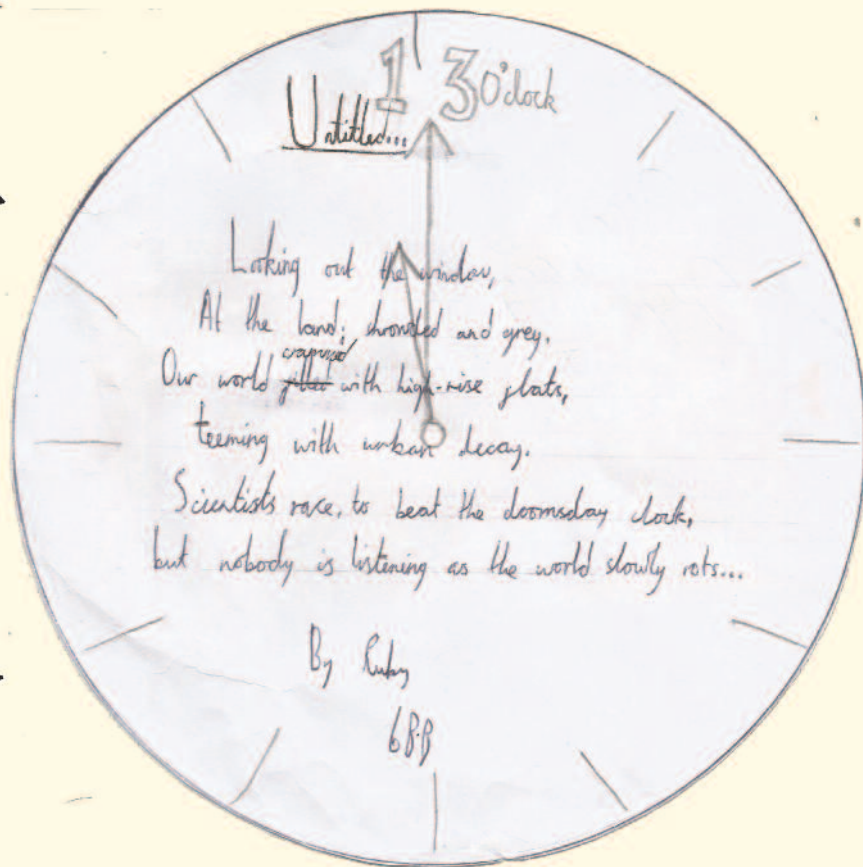 13 O'clock
Untitled...
Looking out the window,
At the land; shrouded and grey.
Our world crammed with high-rise flats,
teeming with urban decay.
Scientists race, to beat the doomsday clock,
but nobody is listening as the world slowly rots...
By Ruby
6B.B